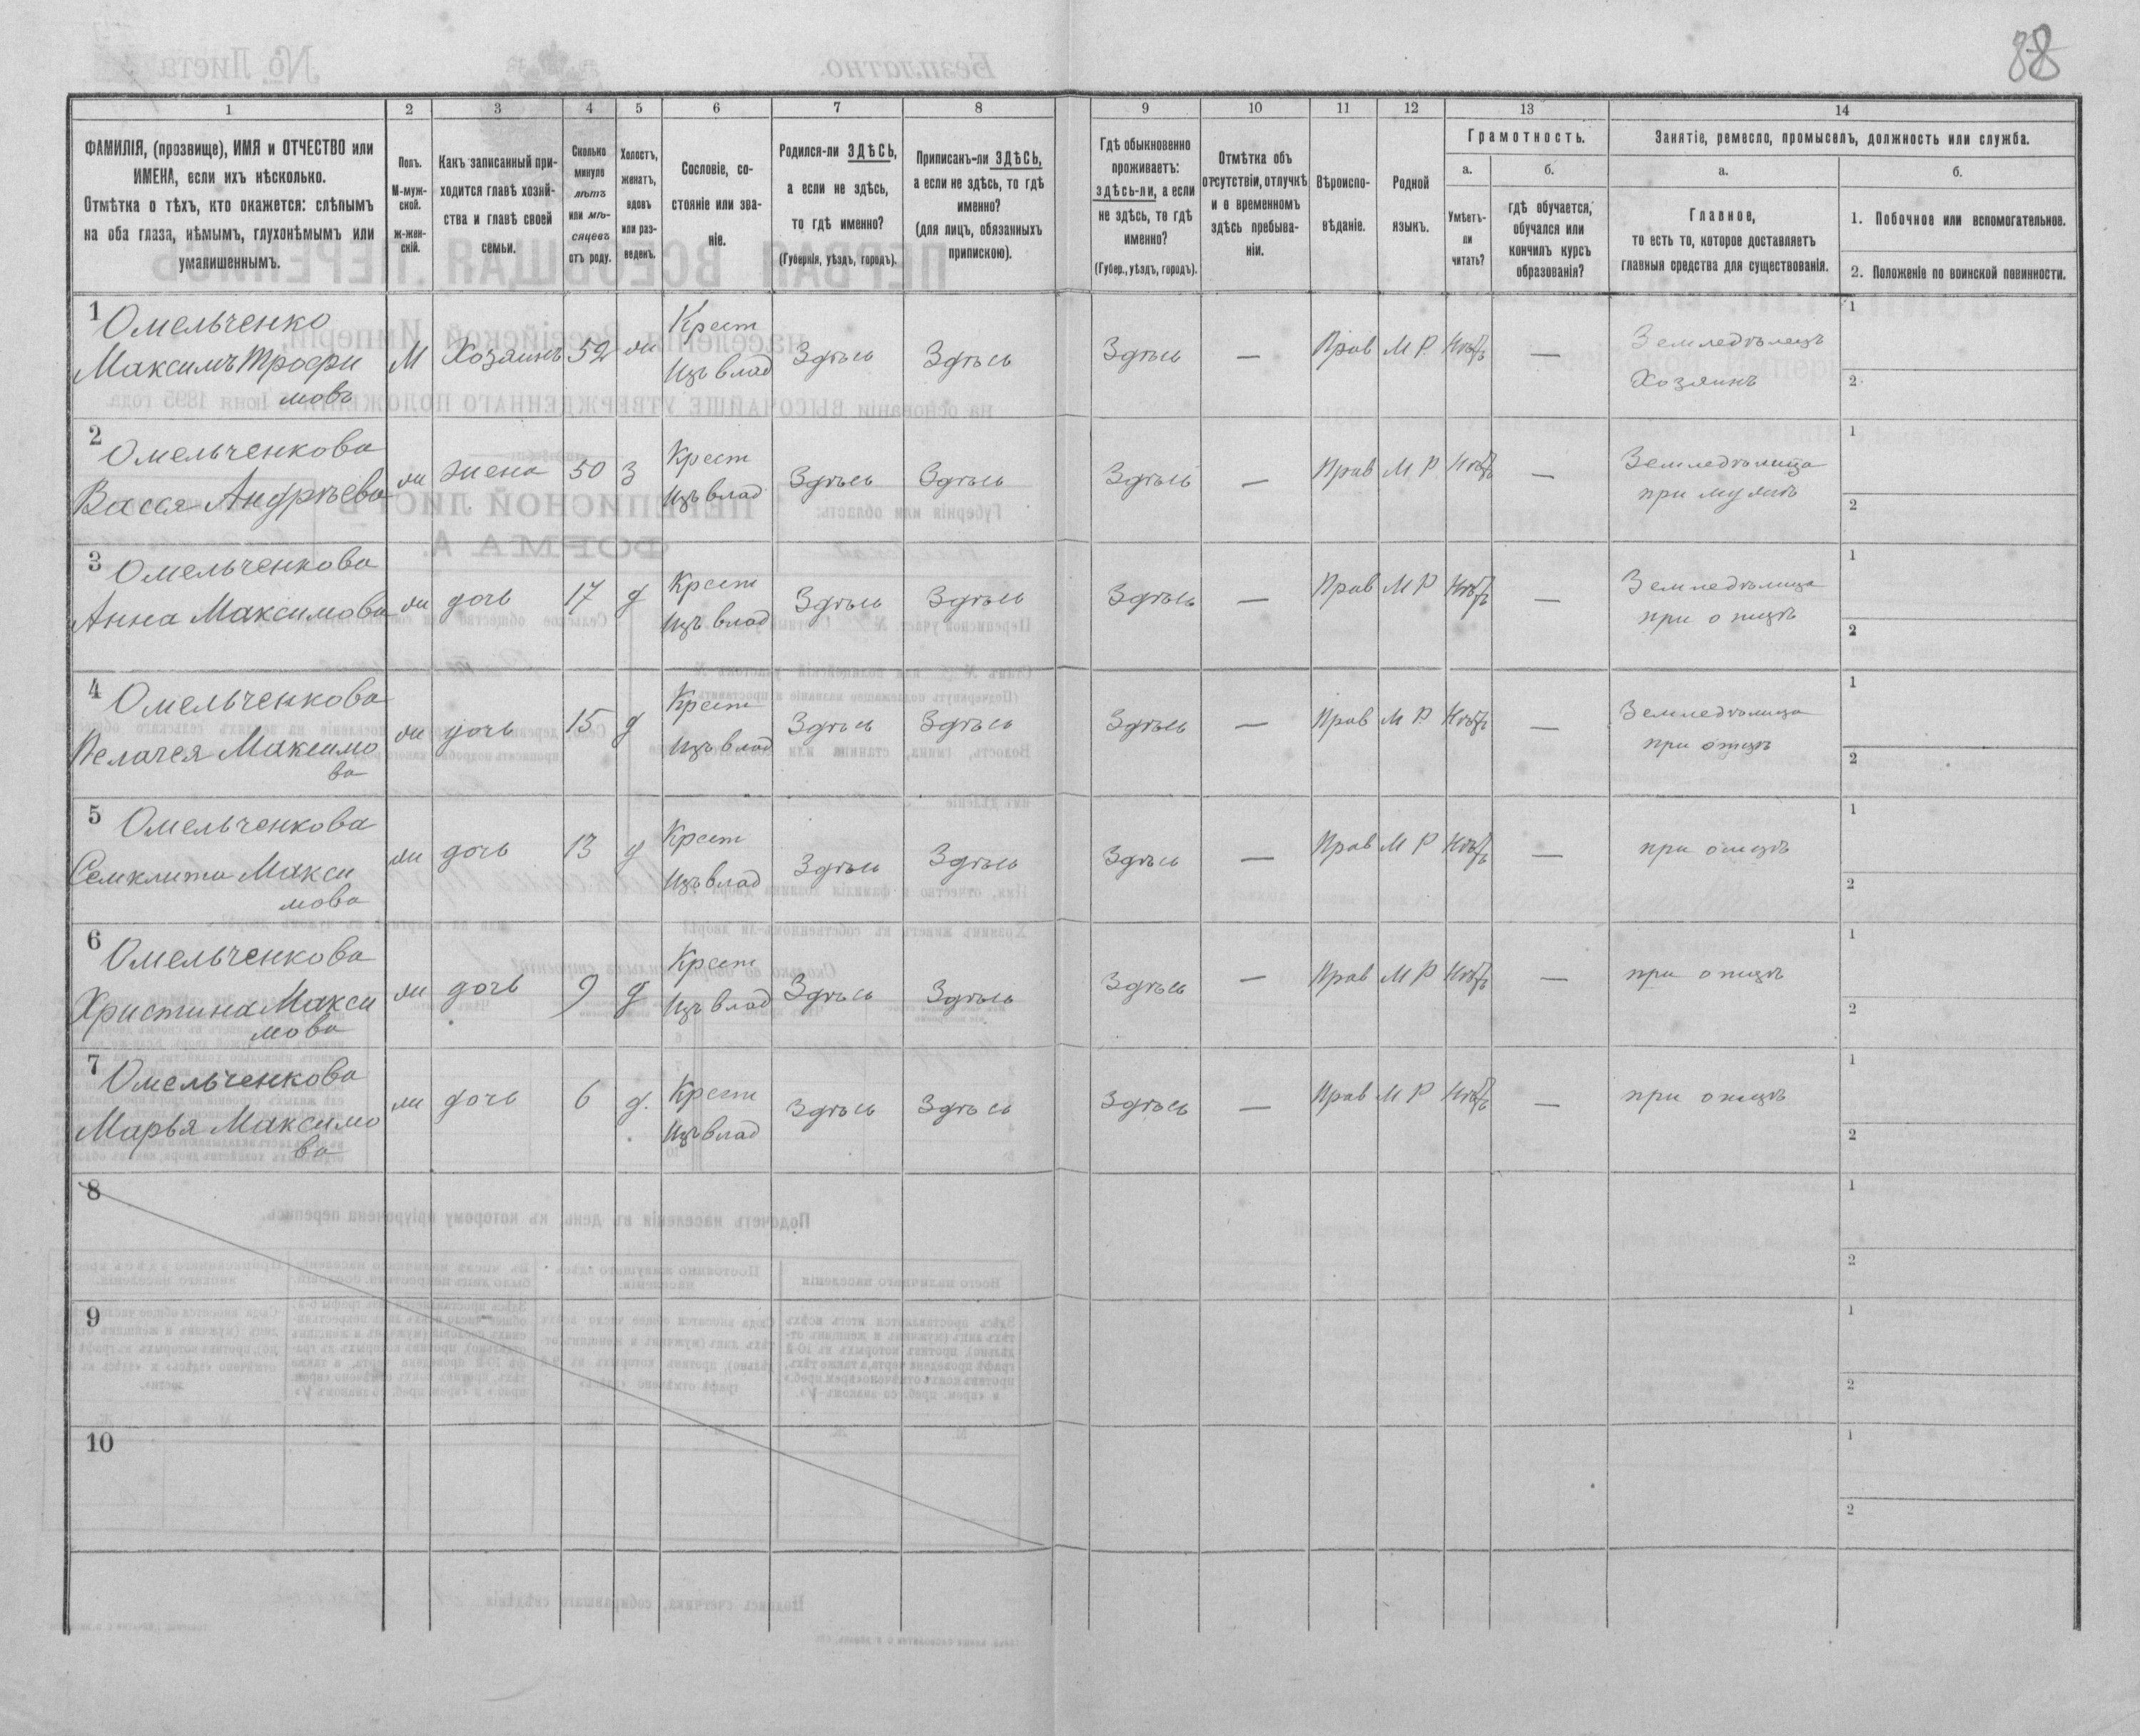 88
1 2 3 4 5 6 7 8 9 10 11 12 13 14
ФАМИЛІЯ, (прозвище), ИМЯ и ОТЧЕСТВО или
ИМЕНА, если ихъ нѣсколько.
Отмѣтка о тѣхъ, кто окажется: слѣпымъ
на оба глаза, нѣмымъ, глухонѣмымъ или
умалишеннымъ.
Полъ.
М-муж-
ской.
ж-жен-
скій.
Какъ записанный при-
ходится главѣ хозяй-
ства и главѣ своей
семьи.
Сколько
минуло
лѣтъ
или мѣ-
сяцевъ
отъ роду.
Холостъ,
женатъ,
вдовъ
или раз-
веденъ.
Сословіе, со-
стояніе или зва-
ніе.
Родился-ли ЗДѢСЬ,
а если не здѣсь,
то гдѣ именно?
(Губернія, уѣздъ, городъ).
Приписанъ-ли ЗДѢСЬ,
а если не здѣсь, то гдѣ
именно?
(для лицъ, обязанныхъ
припискою).
Гдѣ обыкновенно
проживаетъ:
здѣсь-ли, а если
не здѣсь, то гдѣ
именно?
(Губер., уѣздъ, городъ).
Отмѣтка объ
отсутствіи, отлучкѣ
и о временномъ
здѣсь пребыва-
ніи.
Вѣроиспо-
вѣданіе.
Родной
языкъ.
Грамотность.
а.
Умѣетъ-
ли
читать?
б.
гдѣ обучается,
обучался или
кончилъ курсъ
образованія?
Занятіе, ремесло, промыселъ, должность или служба.
а.
Главное,
то есть то, которое доставляетъ
главныя средства для существованія.
б.
1. Побочное или вспомогательное.
2. Положеніе по воинской повинности.
1 Омельченко Крест Земледѣлецъ 1
Максимъ Трофи М Хозяинъ 52 Изъ влад Здѣсь Здѣсь Здѣсь — Прав М Р Нѣтъ — Хозяинъ 2
мовъ
2 Омельченкова Крест Земледѣлица 1
Васса Андрѣева ж жена 50 З Изъ влад Здѣсь Здѣсь Здѣсь — Прав М Р Нѣтъ — при мужѣ 2
3 Омельченкова Крест Земледѣлица 1
Анна Максимова ж дочь 17 д Изъ влад Здѣсь Здѣсь Здѣсь — Прав М Р Нѣтъ — при отцѣ 2
4 Омельченкова Крест Земледѣлица 1
Пелагея Максимо ж дочь 15 д Изъ влад Здѣсь Здѣсь Здѣсь — Прав М Р Нѣтъ — при отцѣ 2
ва
5 Омельченкова Крест 1
Макси ж дочь 13 д Изъ влад Здѣсь Здѣсь Здѣсь — Прав М Р Нѣтъ — при отцѣ 2
мова
6 Омельченкова Крест 1
Христина Макси ж дочь 9 д Изъ влад Здѣсь Здѣсь Здѣсь — Прав М Р Нѣтъ — при отцѣ 2
мова
7 Омельченкова Крест 1
Марья Максимо ж дочь 6 д. Изъ влад Здѣсь Здѣсь Здѣсь — Прав М Р Нѣтъ — при отцѣ 2
ва
8 1
2
9 1
2
10 1
2